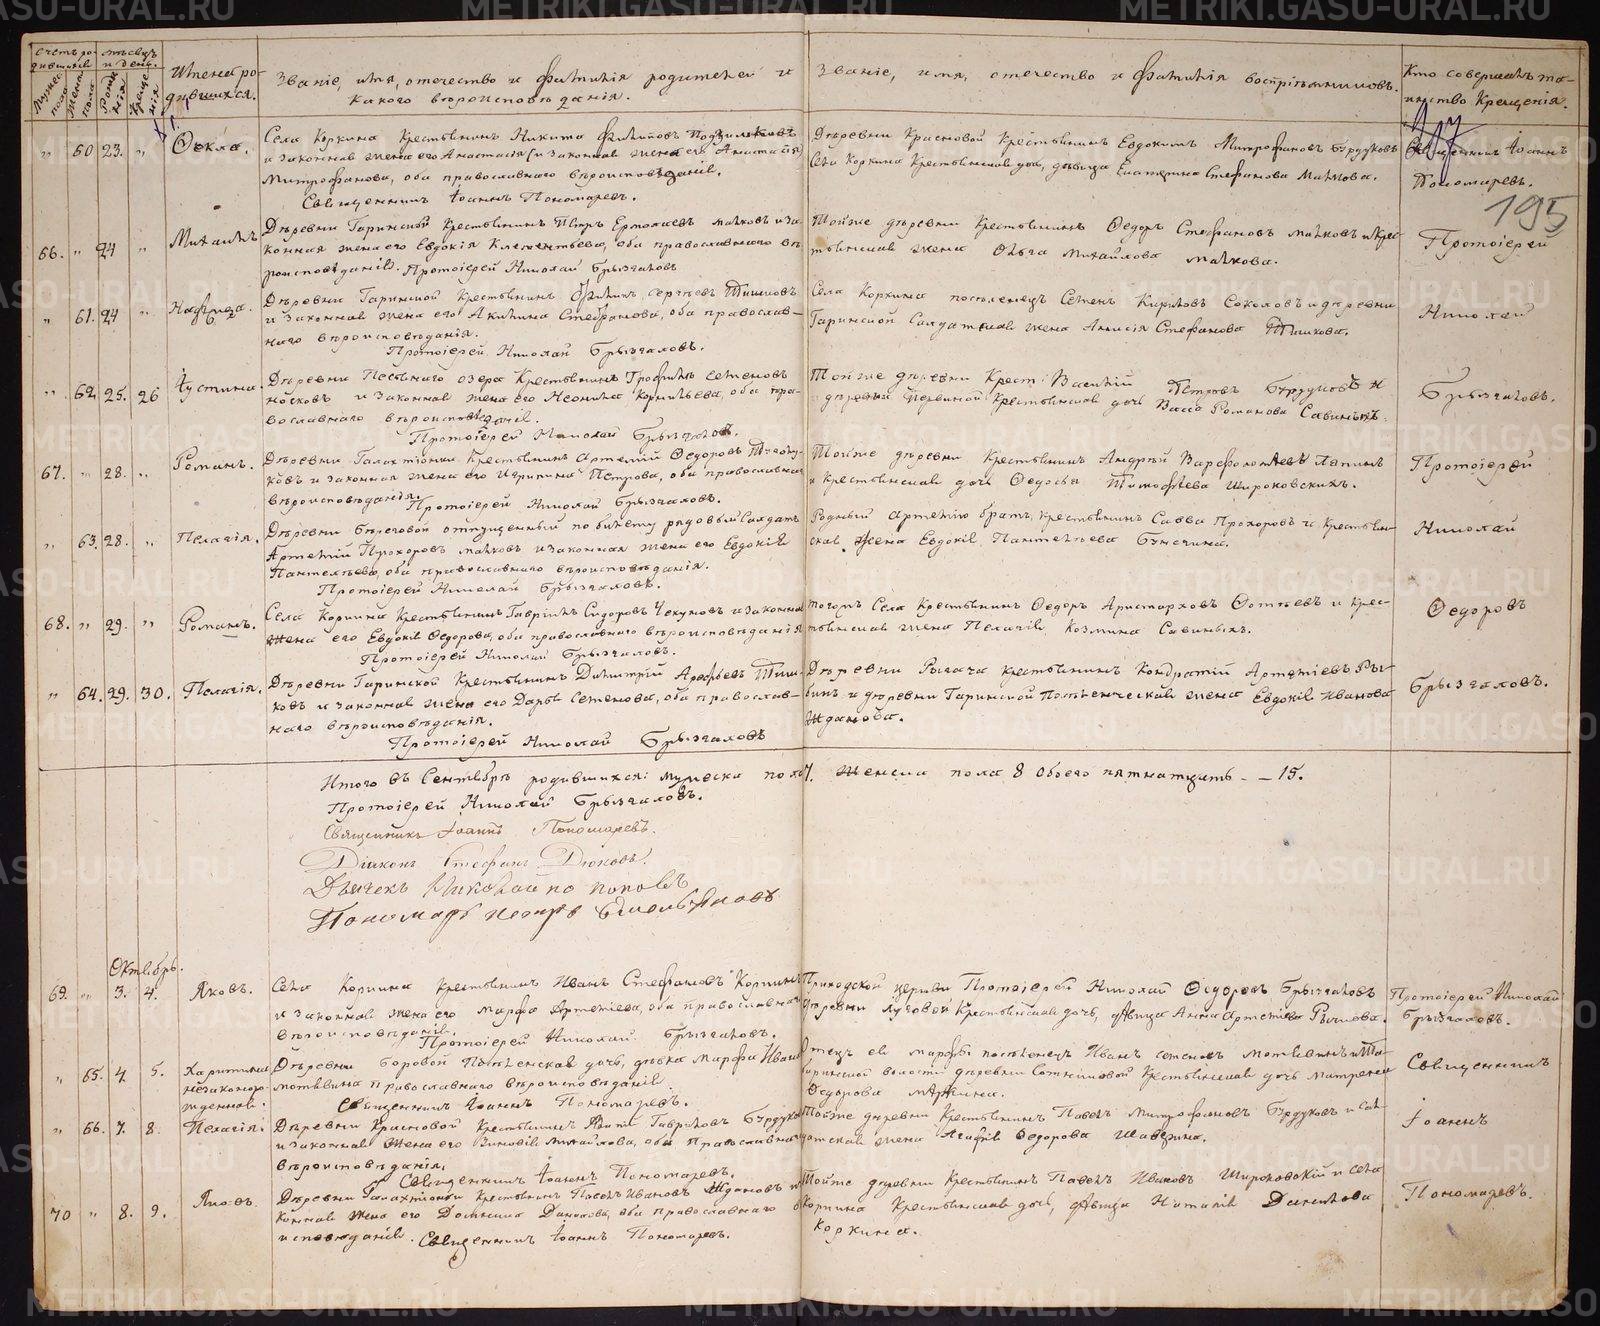 Счетъ родившихся
Мужеска пола
Женска пола
Мѣсяцъ и день
Рожденія
Крещенія
Имена родившихся.
Званіе, имя, отечество и фамилія родителей и
какого вѣроисповѣданія.
Званіе, имя, отечество и фамилія воспріемниковъ.
Кто совершалъ та-
инство Крещенія.
195
„ 60 23. „ Ѳекла.
Села Коркина Крестьянинъ Никита Филиповъ
и законная жена его Анастасія (и законная жена его Анастасія)
Митрофанова, оба православнаго вѣроисповѣданія.
Священникъ Іоаннъ Пономаревъ.
Деревни Красновой Крестьянинъ Евдокимъ Митрофановъ Бурдуковъ
Села Коркина Крестьянская дочь, дѣвица Екатерина Стефанова Малкова.
Священникъ Іоаннъ
Пономаревъ.
66. „ 24 „ Михаилъ
Деревни Гаринской Крестьянинъ Петръ Ермолаевъ Малковъ и за-
конная жена его Евдокія Клементьева, оба православнаго вѣ
роисповѣданія. Протоіерей Николай Брызгаловъ
Тойже деревни Крестьянинъ Ѳедоръ Стефановъ Малковъ и Крес-
тьянская жена Ольга Михайлова Малкова.
Протоіерей
„ 61. 24 „
Деревни Гаринской Крестьянинъ Филипъ Сергѣевъ Тишковъ
и законная жена его Акилина Стефанова, оба православ-
наго вѣроисповѣданія.
Протоіерей Николай Брызгаловъ.
Села Коркина поселенецъ Семенъ Кириловъ Соколовъ и деревни
Гаринской Солдатская жена Анисія Стефанова Тишкова.
Николай
„ 62. 25. 26 Іустина.
Деревни Песьянаго озера Крестьянинъ Трофимъ Семеновъ
Носковъ и законная жена его Неонила Корнильева, оба пра-
вославнаго вѣроисповѣданія.
Протоіерей Николай Брызгаловъ.
Тойже деревни Крест: Василій Петровъ Бурдуковъ и
деревни Крестьянская дочь Васса Романова Савиныхъ.
Брызгаловъ.
67. „ 28. „ Романъ.
Деревни Галактіонки Крестьянинъ Артемій Ѳедоровъ
ковъ и законная жена его Петрова, оба православнаго
вѣроисповѣданія.
Протоіерей Николай Брызгаловъ.
Тойже деревни Крестьянинъ Андрей Варфоломѣевъ Ляпинъ
и Крестьянская дочь Ѳедосья Тимофѣева Широковскихъ.
Протоіерей
„ 63. 28. „ Пелагія.
Деревни Береговой отпущенный по билету рядовый Солдатъ
Артемій Прохоровъ Малковъ и законная жена его Евдокія
Пантелѣева, оба православнаго вѣроисповѣданія.
Протоіерей Николай Брызгаловъ.
Родный Артемію братъ, Крестьянинъ Савва Прохоровъ и Крестьян-
ская жена Евдокія Пантелѣева
Николай
68. „ 29. „ Романъ.
Села Коркина Крестьянинъ Гавріилъ Сидоровъ Чекуновъ и законная
жена его Евдокія Ѳедорова, оба православнаго вѣроисповѣданія
Протоіерей Николай Брызгаловъ.
тогожъ Села Крестьянинъ Ѳедоръ Аристарховъ Ѳотѣевъ и Крес-
тьянская жена Пелагія Козмина Савиныхъ.
Ѳедоровъ
„ 64. 29. 30. Пелагія.
Деревни Гаринской Крестьянинъ Димитрій Тиш-
ковъ и законная жена его Дарья Семенова, оба православ-
наго вѣроисповѣданія.
Протоіерей Николай Брызгаловъ
Деревни Рычача Крестьянинъ Кондратій Артеміевъ Ры-
и деревни Гаринской Поселенческая жена Евдокія Иванова
Жданова.
Брызгаловъ.
Итого въ Сентябрѣ родившихся: мужеска пола 7. Женска пола 8 обоего пятнатцать - - 15.
Протоіерей Николай Брызгаловъ.
Священникъ Іоаннъ Пономаревъ.
Діаконъ Стефанъ Дюковъ.
Дьячекъ Николай Поповъ
Пономарь Петръ Емельяновъ
Октябрь.
69. „ 3. 4. Яковъ.
Села Коркина Крестьянинъ Иванъ Стефановъ Коркинъ
и законная жена его Марфа Артемьева, оба православнаго
вѣроисповѣданія.
Протоіерей Николай Брызгаловъ.
Приходской церкви Протоіерей Николай Ѳедоровъ Брызгаловъ
деревни Луговой Крестьянская дочь, дѣвица Анна Артемьева
Протоіерей Николай
Брызгаловъ.
„ 65. 4. 5. Харитинія
незаконоро-
жденная.
Деревни Боровой Поселенская дочь, дѣвка Марфа Иванова
Мотывина православнаго вѣроисповѣданія.
Священникъ Іоаннъ Пономаревъ.
Отецъ ея Марфы поселенецъ Иванъ Семеновъ Мотывинъ и
волости деревни Сотниковой Крестьянская дочь Матрена
Ѳедорова
Священникъ
„ 66. 7. 8. Пелагія.
Деревни Красновой Крестьянинъ Гавриловъ Бурдуковъ
и законная жена его Зиновія Михайлова, оба православнаго
вѣроисповѣданія.
Священникъ Іоаннъ Пономаревъ.
Тойже деревни Крестьянинъ Павелъ Митрофановъ Бурдуковъ и Сол-
датская жена Агафія Ѳедорова
Іоаннъ
70 „ 8. 9. Яковъ.
Деревни Галактіонки Крестьянинъ Ивановъ Ждановъ и за
конная жена его Домника Данилова, оба православнаго
исповѣданія. Священникъ Іоаннъ Пономаревъ.
Тойже деревни Крестьянинъ Павелъ Ивановъ Широковскій и села
Коркина Крестьянская дочь, дѣвица Наталія Данилова
Коркина.
Пономаревъ.
METRIKI.GASO-URAL.RU